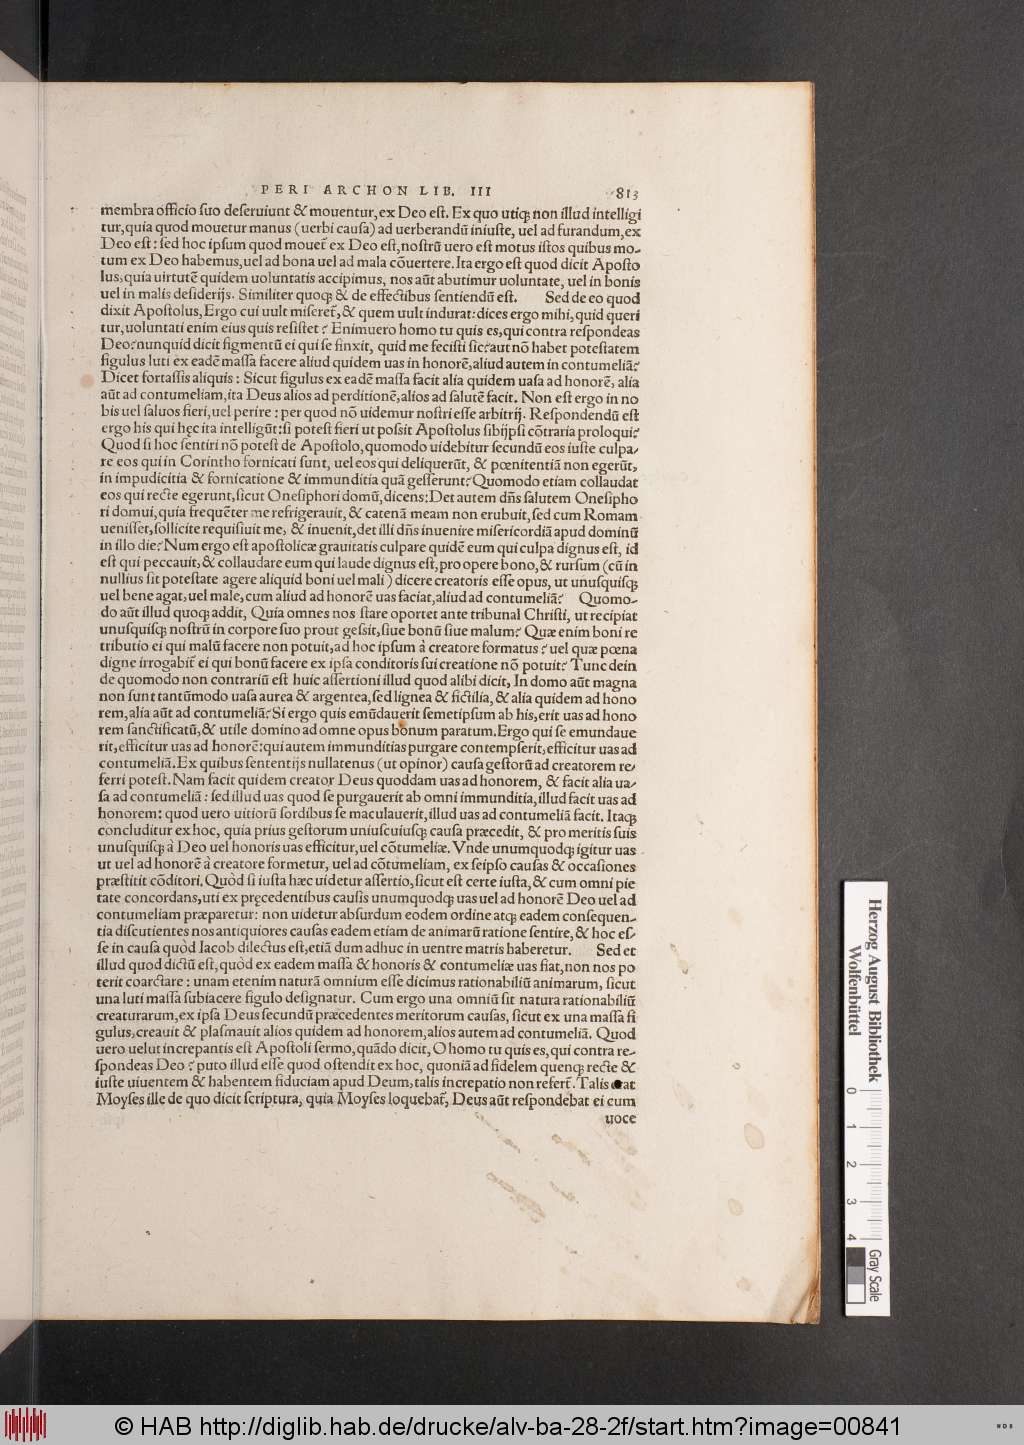 PERI ARCHON LIB. III 813
membra officio suo deseruiunt & mouentur, ex Deo est. Ex quo utiqꝫ non illud intelligi
tur, quia quod mouetur manus (uerbi causa) ad uerberandũ iniuste, uel ad furandum, ex
Deo est: sed hoc ipsum quod mouet᷑ ex Deo est, nostrũ uero est motus istos quibus mo-
tum ex Deo habemus, uel ad bona uel ad mala cõuertere. Ita ergo est quod dicit Aposto
lus, quia uirtutẽ quidem uoluntatis accipimus, nos aũt abutimur uoluntate, uel in bonis
uel in malis desiderijs. Similiter quoqꝫ & de effectibus sentiendũ est. Sed de eo quod
dixit Apostolus, Ergo cui uult miseret᷑, & quem uult indurat: dices ergo mihi, quid queri
tur, uoluntati enim eius quis resistet? Enimuero homo tu quis es, qui contra respondeas
Deo? nunquid dicit figmentũ ei qui se finxit, quid me fecisti sic? aut nõ habet potestatem
figulus luti ex eadẽ massa facere aliud quidem uas in honorẽ, aliud autem in contumeliã?
Dicet fortassis aliquis: Sicut figulus ex eadẽ massa facit alia quidem uasa ad honorẽ, alia
aũt ad contumeliam, ita Deus alios ad perditionẽ, alios ad salutẽ facit. Non est ergo in no
bis uel saluos fieri, uel perire: per quod nõ uidemur nostri esse arbitrij. Respondendũ est
ergo his qui hęc ita intelligũt: si potest fieri ut possit Apostolus sibijpsi cõtraria proloqui?
Quod si hoc sentiri nõ potest de Apostolo, quomodo uidebitur secundũ eos iuste culpa-
re eos qui in Corintho fornicati sunt, uel eos qui deliquerũt, & pœnitentiã non egerũt,
in impudicitia & fornicatione & immunditia quã gesserunt? Quomodo etiam collaudat
eos qui recte egerunt, sicut Onesiphori domũ, dicens: Det autem dñs salutem Onesipho
ri domui, quia frequẽter me refrigerauit, & catenã meam non erubuit, sed cum Romam
uenisset, sollicite requisiuit me, & inuenit, det illi dñs inuenire misericordiã apud dominũ
in illo die? Num ergo est apostolicæ grauitatis culpare quidẽ eum qui culpa dignus est, id
est qui peccauit, & collaudare eum qui laude dignus est, pro opere bono, & rursum (cũ in
nullius sit potestate agere aliquid boni uel mali) dicere creatoris esse opus, ut unusquisqꝫ
uel bene agat, uel male, cum aliud ad honorẽ uas faciat, aliud ad contumeliã? Quomo-
do aũt illud quoqꝫ addit, Quia omnes nos stare oportet ante tribunal Christi, ut recipiat
unusquisqꝫ nostrũ in corpore suo prout gessit, siue bonũ siue malum? Quæ enim boni re
tributio ei qui malũ facere non potuit, ad hoc ipsum à creatore formatus? uel quæ pœna
digne irrogabit᷑ ei qui bonũ facere ex ipsa conditoris sui creatione nõ potuit? Tunc dein
de quomodo non contrariũ est huic assertioni illud quod alibi dicit, In domo aũt magna
non sunt tantũmodo uasa aurea & argentea, sed lignea & fictilia, & alia quidem ad hono
rem, alia aũt ad contumeliã? Si ergo quis emũdauerit semetipsum ab his, erit uas ad hono
rem sanctificatũ, & utile domino ad omne opus bonum paratum. Ergo qui se emundaue
rit, efficitur uas ad honorẽ: qui autem immunditias purgare contempserit, efficitur uas ad
contumeliã. Ex quibus sententijs nullatenus (ut opinor) causa gestorũ ad creatorem re-
ferri potest. Nam facit quidem creator Deus quoddam uas ad honorem, & facit alia ua-
sa ad contumeliã: sed illud uas quod se purgauerit ab omni immunditia, illud facit uas ad
honorem: quod uero uitiorũ sordibus se maculauerit, illud uas ad contumeliã facit. Itaqꝫ
concluditur ex hoc, quia prius gestorum uniuscuiusqꝫ causa præcedit, & pro meritis suis
unusquisqꝫ à Deo uel honoris uas efficitur, uel cõtumeliæ. Vnde unumquodqꝫ igitur uas
ut uel ad honorẽ à creatore formetur, uel ad cõtumeliam, ex seipso causas & occasiones
præstitit cõditori. Quòd si iusta hæc uidetur assertio, sicut est certe iusta, & cum omni pie
tate concordans, uti ex pręcedentibus causis unumquodqꝫ uas uel ad honorẽ Deo uel ad
contumeliam præparetur: non uidetur absurdum eodem ordine atqꝫ eadem consequen-
tia discutientes nos antiquiores causas eadem etiam de animarũ ratione sentire, & hoc es-
se in causa quòd Iacob dilectus est, etiã dum adhuc in uentre matris haberetur. Sed et
illud quod dictũ est, quòd ex eadem massa & honoris & contumeliæ uas fiat, non nos po
terit coarctare: unam etenim naturã omnium esse dicimus rationabiliũ animarum, sicut
una luti massa subiacere figulo designatur. Cum ergo una omniũ sit natura rationabiliũ
creaturarum, ex ipsa Deus secundũ præcedentes meritorum causas, sicut ex una massa fi
gulus, creauit & plasmauit alios quidem ad honorem, alios autem ad contumeliã. Quod
uero uelut increpantis est Apostoli sermo, quãdo dicit, O homo tu quis es, qui contra re-
spondeas Deo? puto illud esse quod ostendit ex hoc, quoniã ad fidelem quenqꝫ recte &
iuste uiuentem & habentem fiduciam apud Deum, talis increpatio non refert᷑. Talis erat
Moyses ille de quo dicit scriptura, quia Moyses loquebat᷑, Deus aũt respondebat ei cum
uoce
Herzog August Bibliothek
Wolfenbüttel
0 1 2 3 4
Gray Scale
© HAB http://diglib.hab.de/drucke/alv-ba-28-2f/start.htm?image=00841